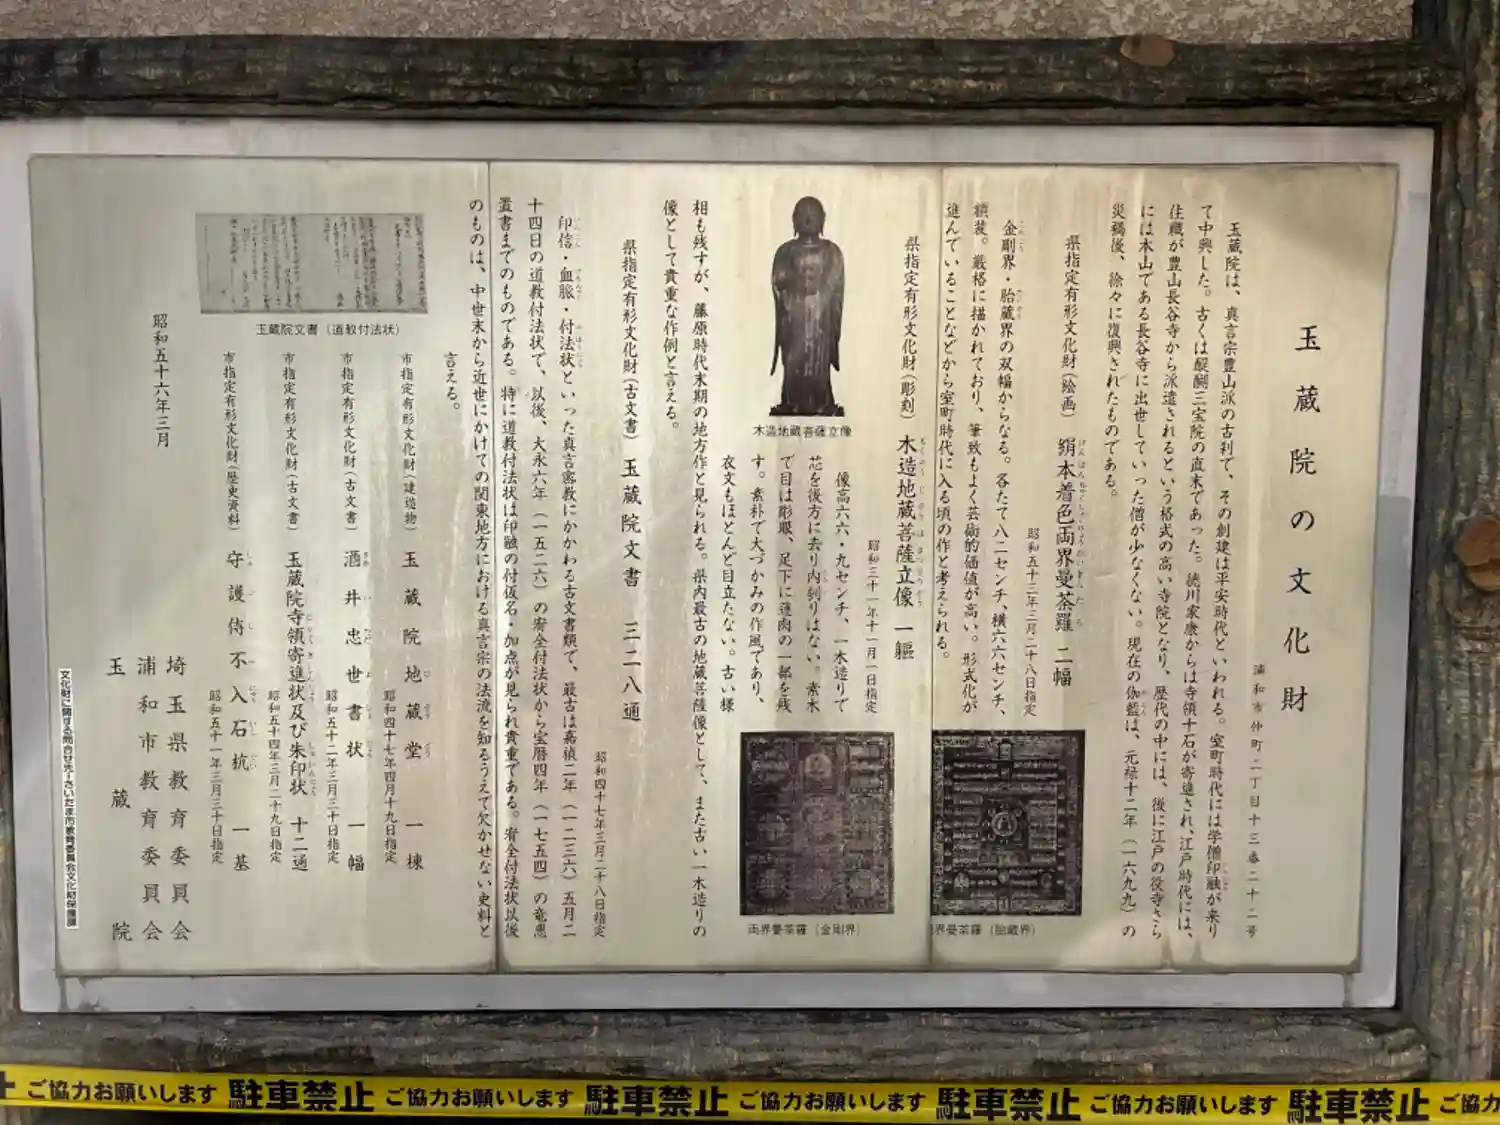 玉蔵院の文化財
浦和市仲町二丁目十三番二十二号
玉蔵院は、真言宗豊山派の古刹で、その創建は平安時代といわれる。室町時代には学僧印融が来り
て中興した。古くは醍醐三宝院の直末であった。徳川家康からは寺領十石が寄進され、江戸時代には、
住職が豊山長谷寺から派遣されるという格式の高い寺院となり、歴代の中には、後に江戸の役寺さら
には本山である長谷寺に出世していった僧が少なくない。現在の伽藍は、元禄十二年（一六九九）の
災禍後、徐々に復興されたものである。
県指定有形文化財（絵画） 絹本着色両界曼荼羅 二幅
昭和五十三年三月二十八日指定
金剛界・胎蔵界の双幅からなる。各たて八二センチ、横六六センチ、
額装。厳格に描かれており、筆致もよく芸術的価値が高い。形式化が
進んでいることなどから室町時代に入る頃の作と考えられる。
両界曼荼羅（胎蔵界）
県指定有形文化財（彫刻） 木造地蔵菩薩立像 一軀
昭和三十一年十一月一日指定
木造地蔵菩薩立像
像高六六・九センチ、一木造りで
芯を後方に去り内刳りはない。素木
で目は彫眼、足下に蓮肉の一部を残
す。素朴で大づかみの作風であり、
衣文もほとんど目立たない。古い様
相も残すが、藤原時代末期の地方作と見られる。県内最古の地蔵菩薩像として、また古い一木造りの
像として貴重な作例と言える。
両界曼荼羅（金剛界）
県指定有形文化財（古文書） 玉蔵院文書 三二八通
昭和四十七年三月二十八日指定
印信・血脈・付法状といった真言密教にかかわる古文書類で、最古は嘉禎二年（一二三六）五月二
十四日の道教付法状で、以後、大永六年（一五二六）の宥全付法状から宝暦四年（一七五四）の竜恵
置書までのものである。特に道教付法状は印融の付仮名・加点が見られ貴重である。宥全付法状以後
のものは、中世末から近世にかけての関東地方における真言宗の法流を知るうえで欠かせない史料と
言える。
玉蔵院文書（道教付法状）
市指定有形文化財（建造物） 玉蔵院地蔵堂 一棟
昭和四十七年四月十九日指定
市指定有形文化財（古文書） 酒井忠世書状 一幅
昭和五十二年三月三十日指定
市指定有形文化財（古文書） 玉蔵院寺領寄進状及び朱印状 十二通
昭和五十四年三月二十九日指定
市指定有形文化財（歴史資料） 守護侍不入石杭 一基
昭和五十一年三月三十日指定
昭和五十六年三月
埼玉県教育委員会
浦和市教育委員会
玉蔵院
文化財に関する問合せ先→さいたま市教育委員会文化財保護課
止 ご協力お願いします 駐車禁止 ご協力お願いします 駐車禁止 ご協力お願いします 駐車禁止 ご協力お願いします 駐車禁止 ご協力